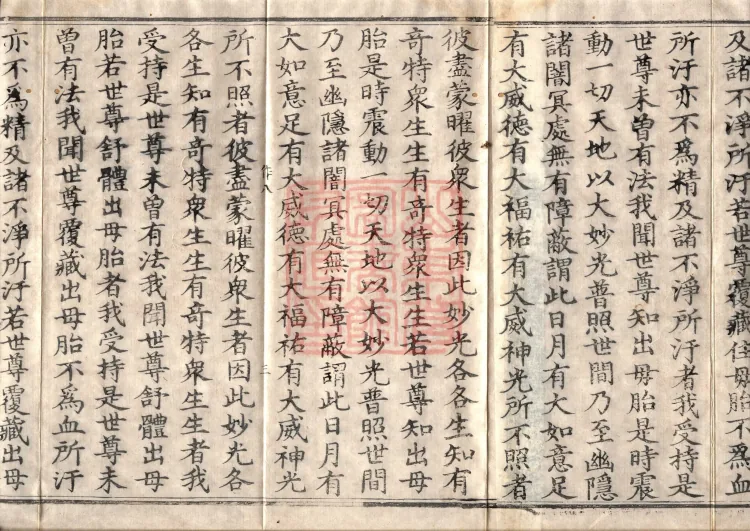 及諸不淨所汙若世尊覆藏住母胎不爲血
所汙亦不爲精及諸不淨所汙者我受持是
世尊未曽有法我聞世尊知出母胎是時震
動一切天地以大妙光普照世間乃至幽隱
諸闇冥處無有障蔽謂此日月有大如意足
有大威德有大福祐有大威神光所不照者
彼盡蒙曜彼衆生者因此妙光各各生知有
奇特衆生生有奇特衆生生若世尊知出母
胎是時震動一切天地以大妙光普照世間
乃至幽隱諸闇冥處無有障蔽謂此日月有
大如意足有大威德有大福祐有大威神光
三
所不照者彼盡蒙曜彼衆生者因此妙光各
各生知有奇特衆生生有奇特衆生生者我
受持是世尊未曽有法我聞世尊舒體出母
胎若世尊舒體出母胎者我受持是世尊未
曽有法我聞世尊覆藏出母胎不爲血所汙
亦不爲精及諸不淨所汙若世尊覆藏出母